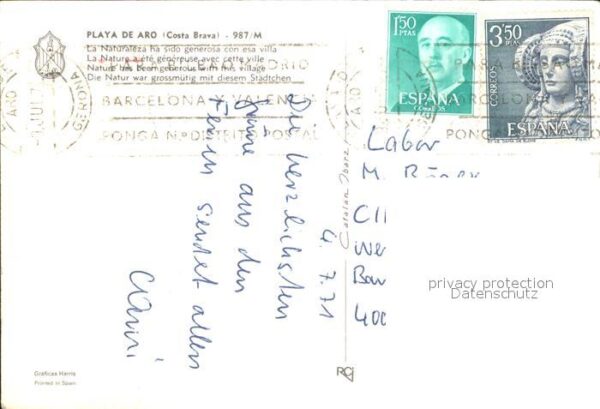 PLAYA DE ARO (Costa Brava) - 987/M
La Naturaleza ha sido generosa con esa villa
La Nature a été généreuse avec cette ville
Nature has been generous with this village
Die Natur war grossmütig mit diesem Städtchen
BARCELONA Y VALENCIA
PONGA Nº DISTRITO POSTAL
GERONA
1'50
PTAS
ESPAÑA
CORREOS
3'50
PTAS
CORREOS
ESPAÑA
PONGA
4.7.71
Die herzlichsten
Grüße aus den
Ferien sendet allen
Labor
M.
CH
We
Bar
400
privacy protection
Datenschutz
Graficas Harris
Printed in Spain